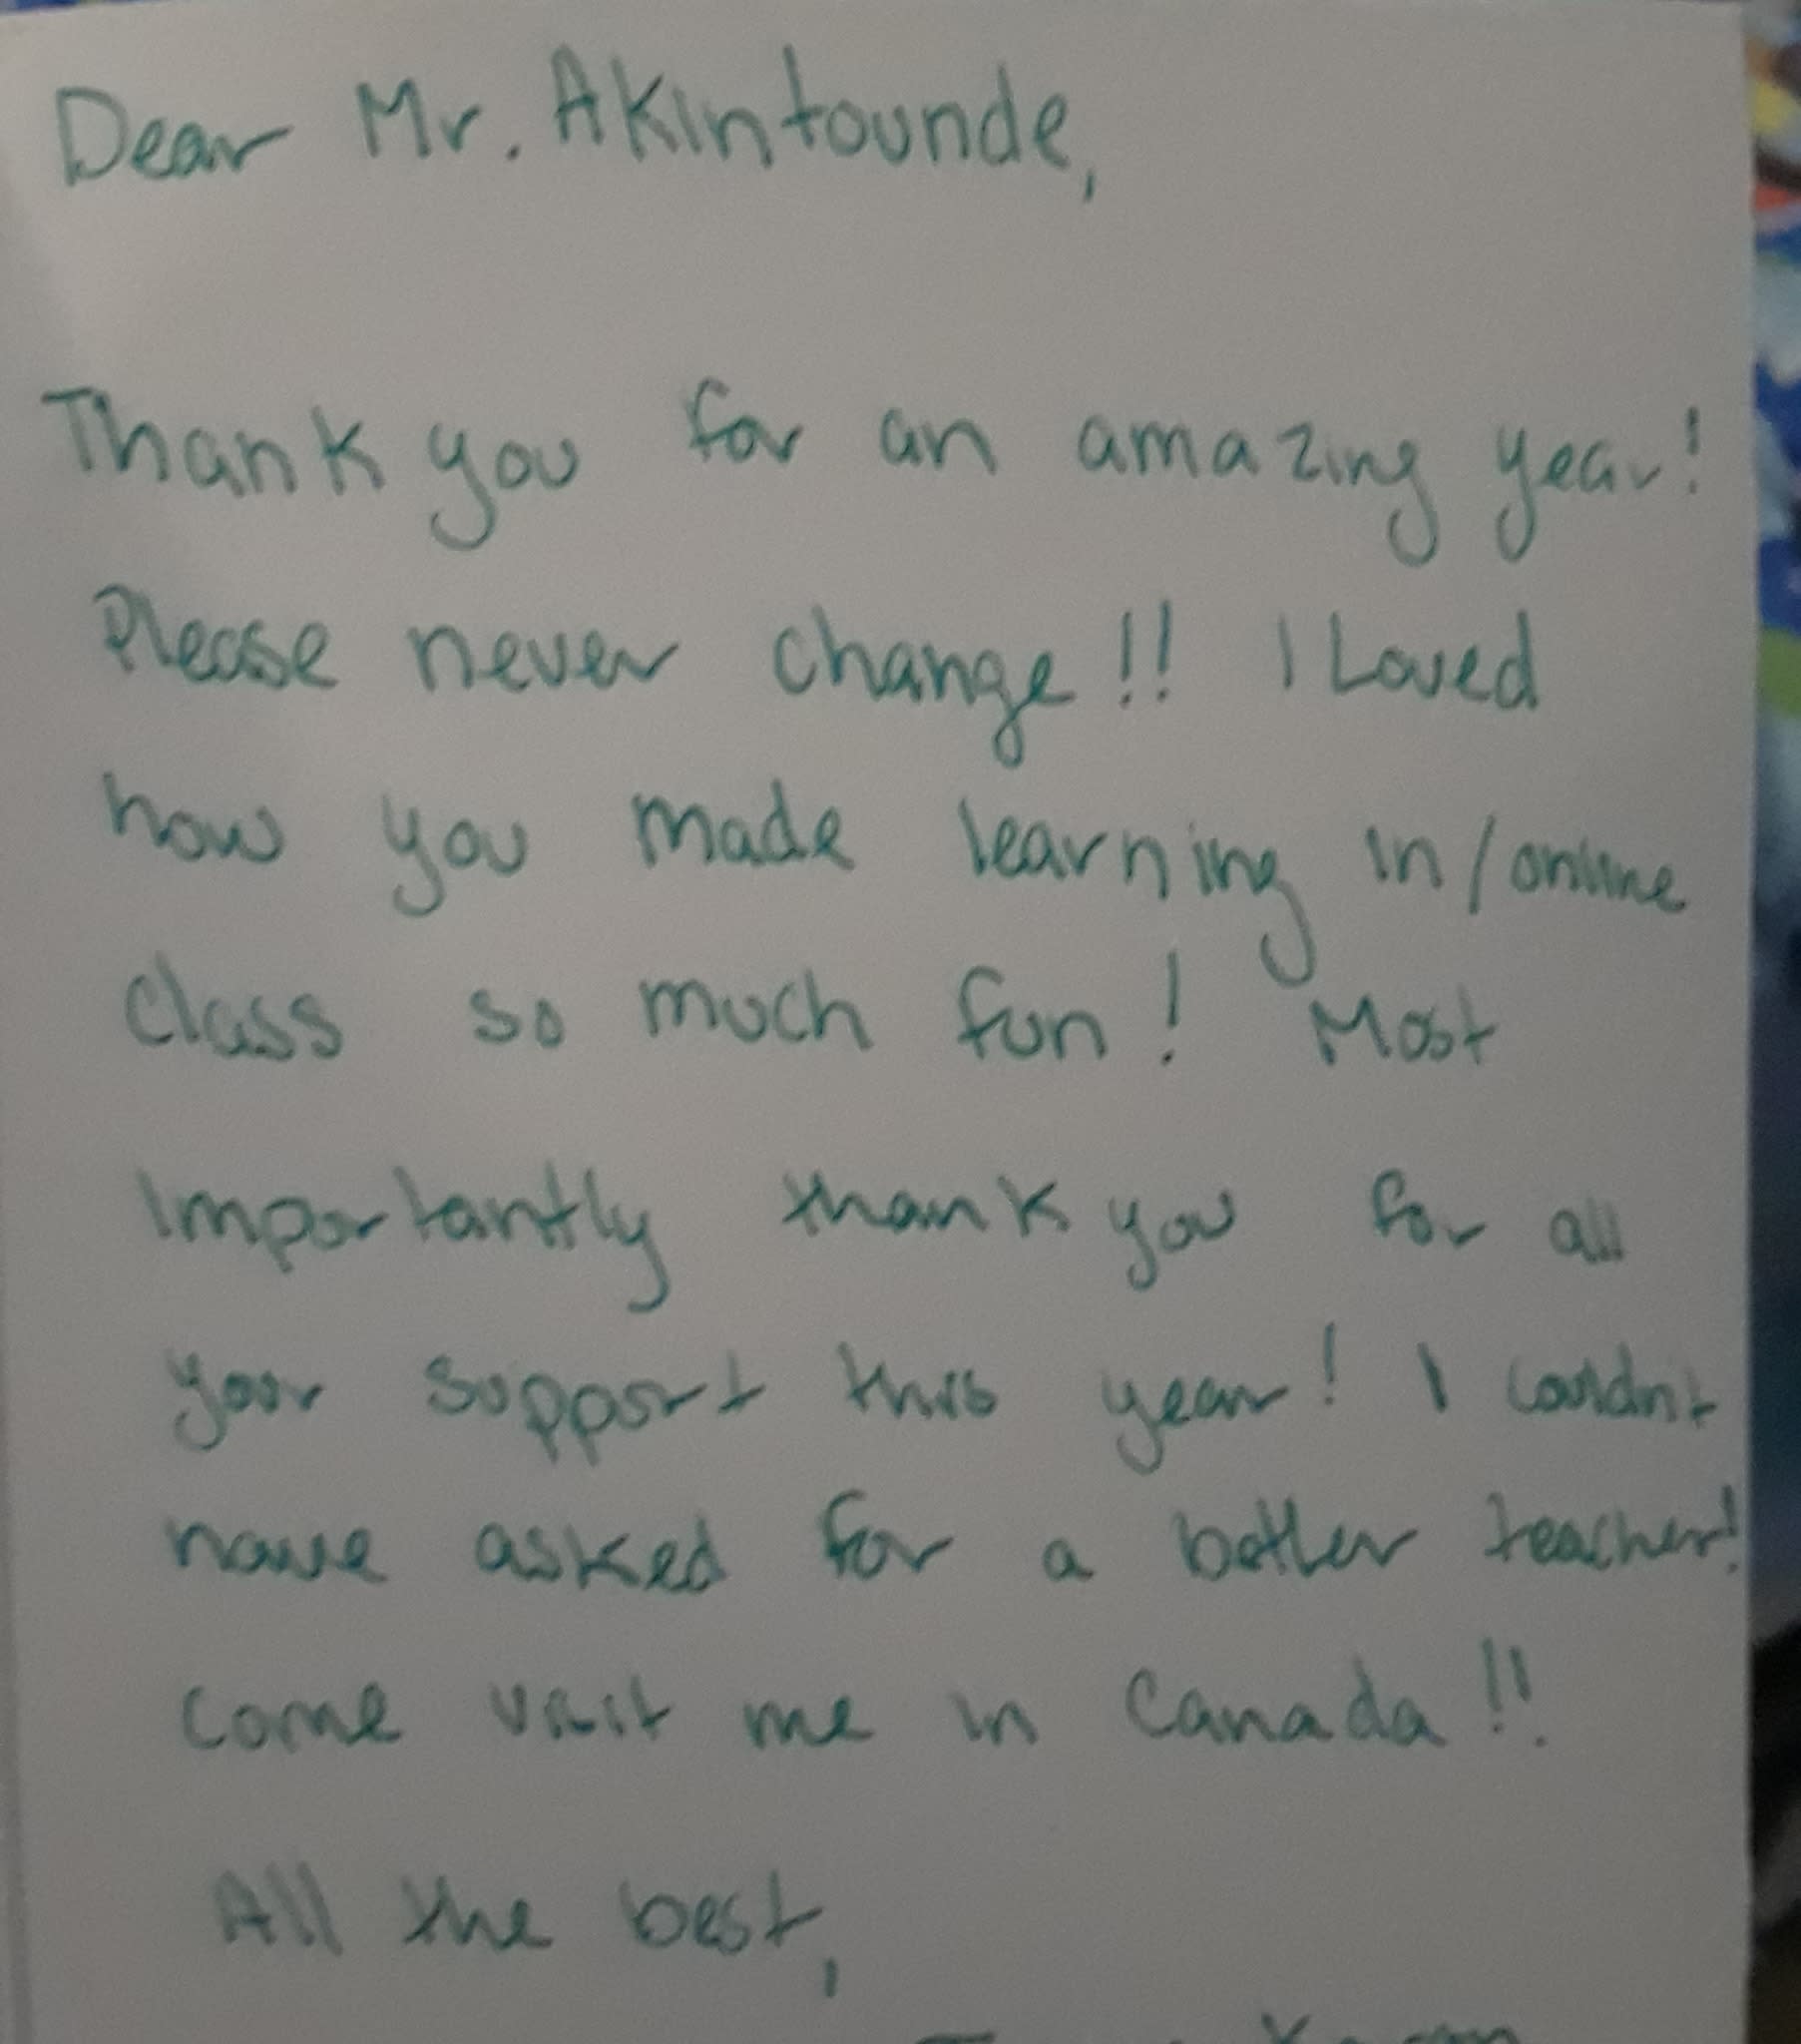 Dear Mr. Akintounde,
Thank you for an amazing year!
Please never change!! I Loved
how you made learning in/online
class so much fun! Most
Importantly thank you for all
your support this year! I couldnt
have asked for a better teacher!
Come visit me in Canada!!
All the best,